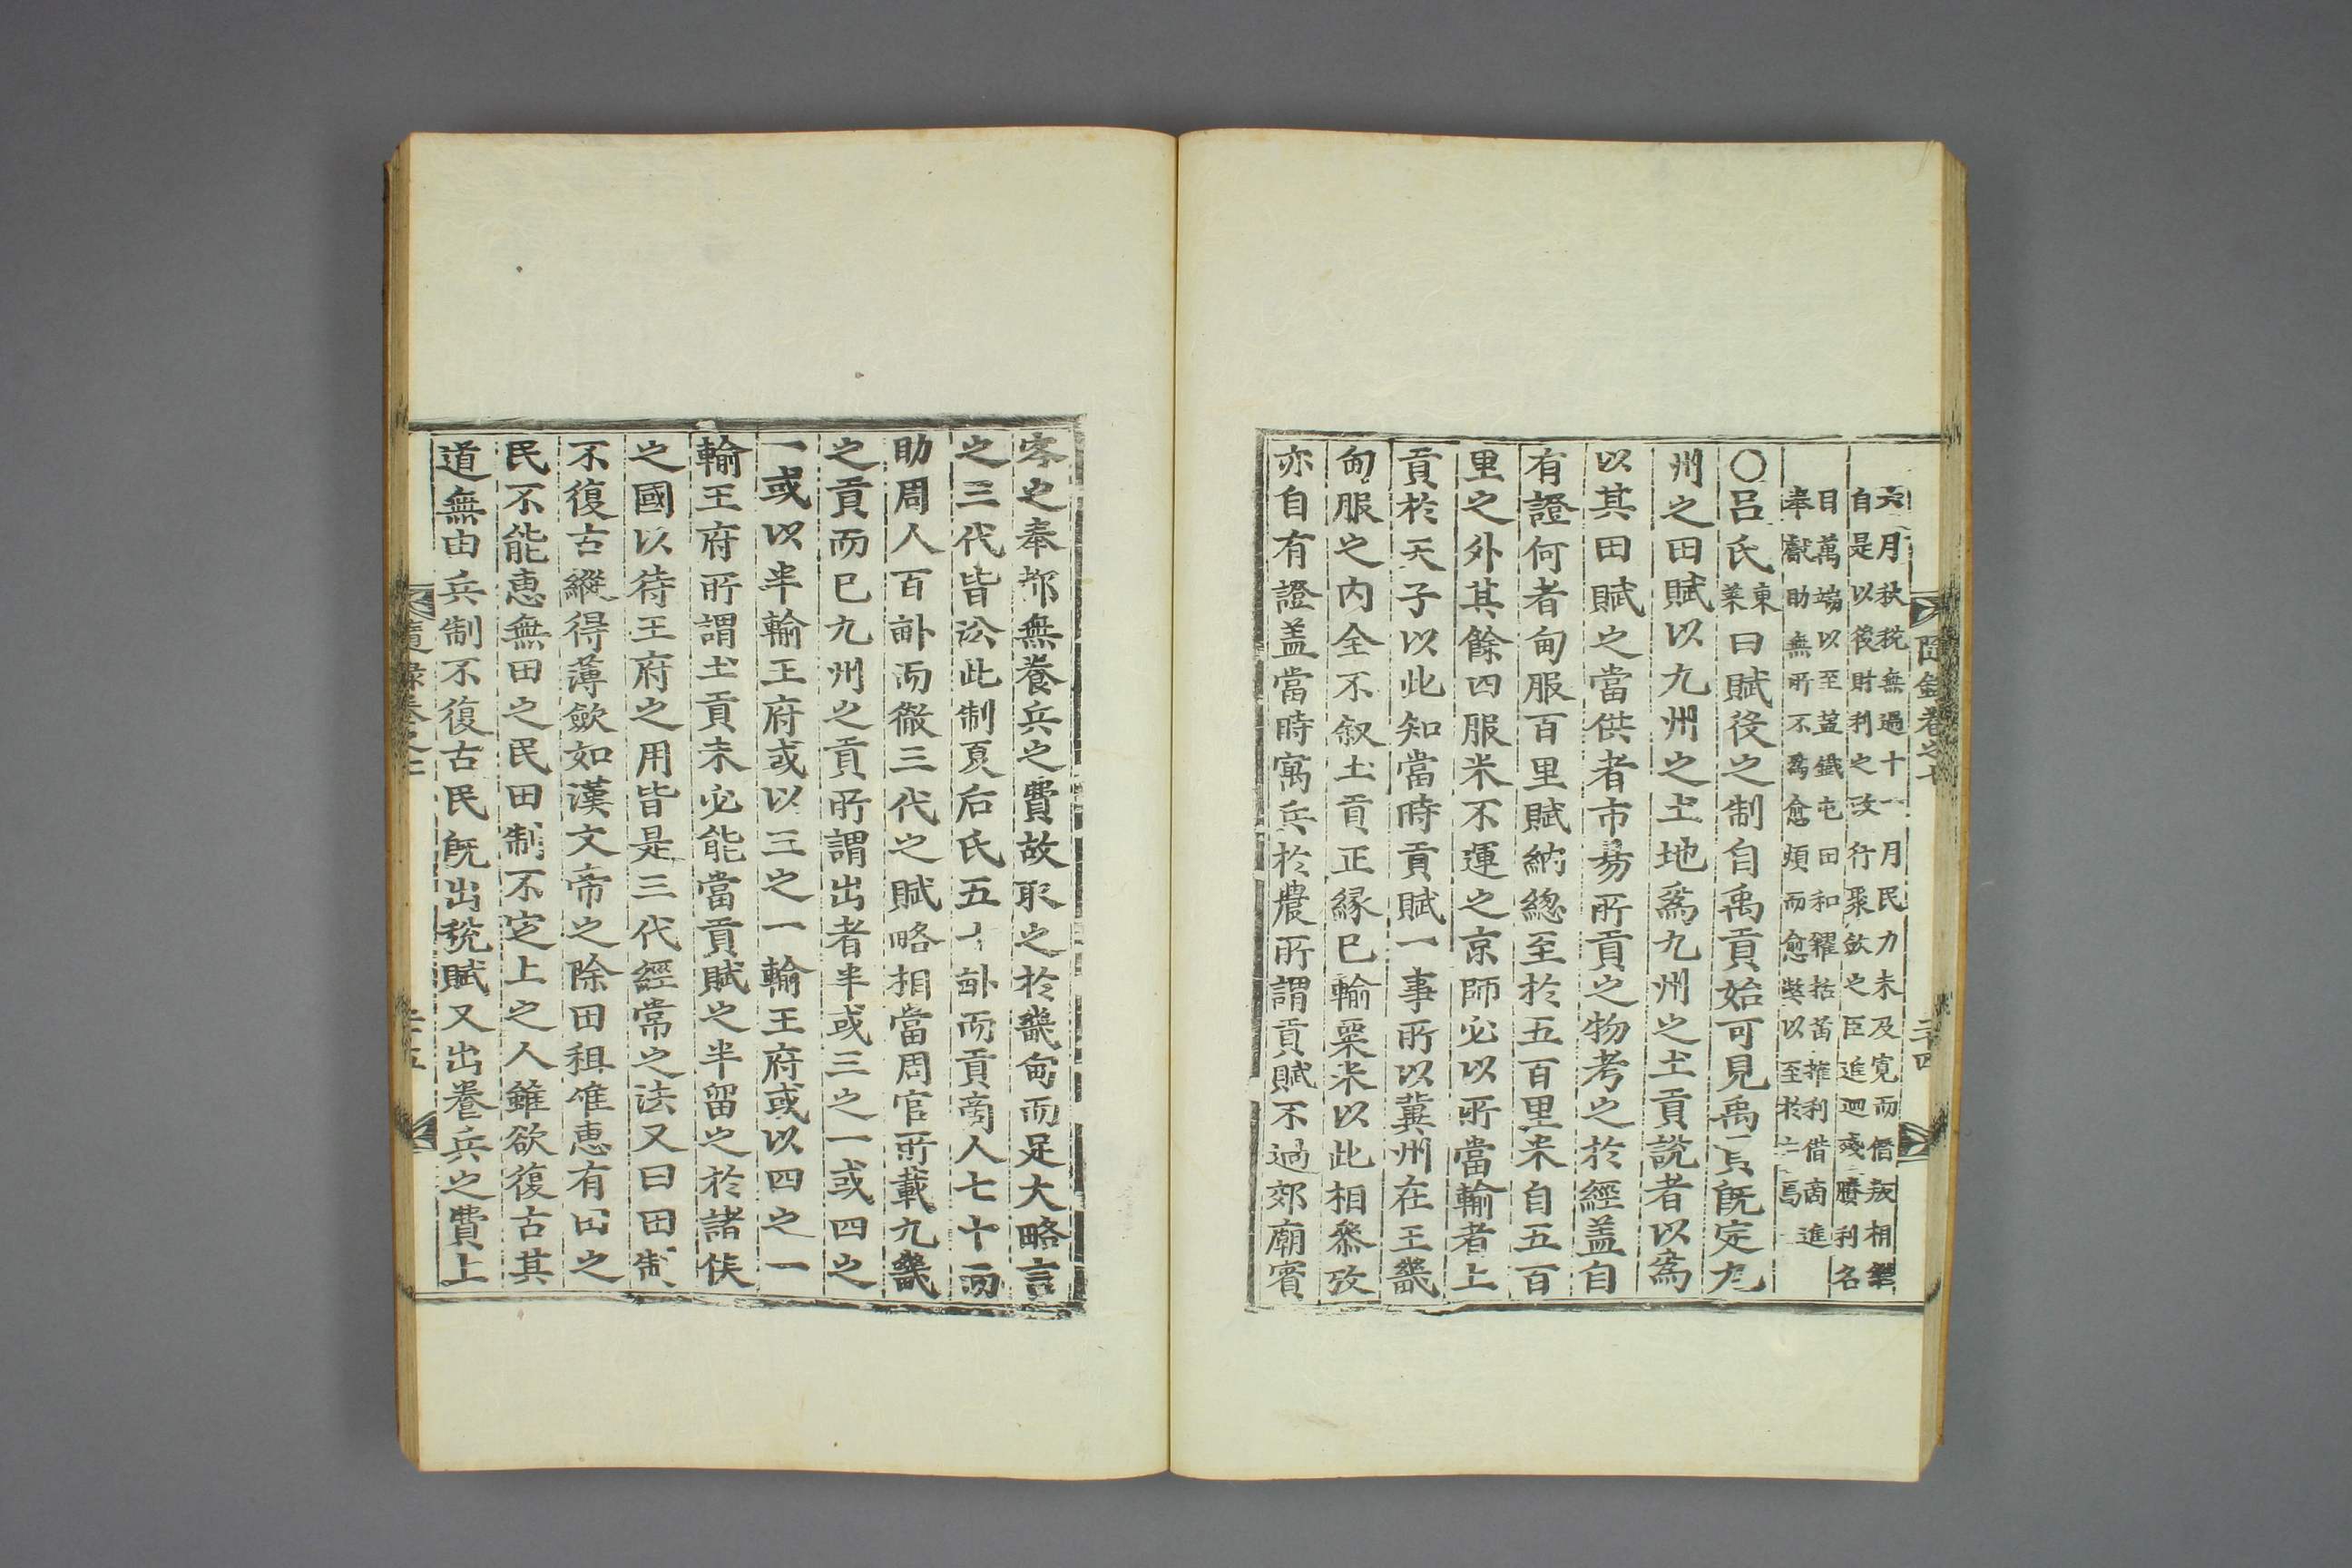 六月秋稅無過十一月民力未及寬而僭叛相繼
自是以後財利之政行聚斂之臣進迴殘賸利名
目萬端以至益鐵屯田和糴括苗搉利借商進
奉獻助無所不爲愈煩而愈弊以至於亡焉
○呂氏東萊曰賦役之制自禹貢始可見禹貢旣定九
州之田賦以九州之土地爲九州之土貢說者以爲
以其田賦之當供者市易所貢之物考之於經盖自
有證何者甸服百里賦納緫至於五百里米自五百
里之外其餘四服米不運之京師必以所當輸者上
貢於天子以此知當時貢賦一事所以兾州在王畿
甸服之內全不叙土貢正縁已輸粟米以此相叅攷
亦自有證盖當時寓兵於農所謂貢賦不過郊廟賓
客之奉都無養兵之費故取之於畿甸而足大略言
之三代皆沿此制夏后氏五十畒而貢商人七十而
助周人百畒而徹三代之賦略相當周官所載九畿
之貢而已九州之貢所謂出者半或三之一或四之
一或以半輸王府或以三之一輸王府或以四之一
輸王府所謂土貢未必能當貢賦之半留之於諸侯
之國以待王府之用皆是三代經常之法又曰田制
不復古縱得薄歛如漢文帝之除田租唯惠有田之
民不能惠無田之民田制不定上之人雖欲復古其
道無由兵制不復古民旣出稅賦又出養兵之費上